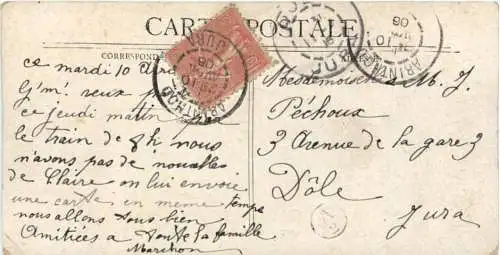 CARTE POSTALE
CORRESPON
ce mardi 10
ce jeudi matin
le train de 8h nous
n'avons pas de nouvelles
de Claire on lui envoie
une carte en même temps
nous allons tous bien
Amitiées a toute la famille
ARINTHOD
JURA
06
Mesdemoiselles M. J.
Péchoux
3 Avenue de la gare 3
Dôle
Jura